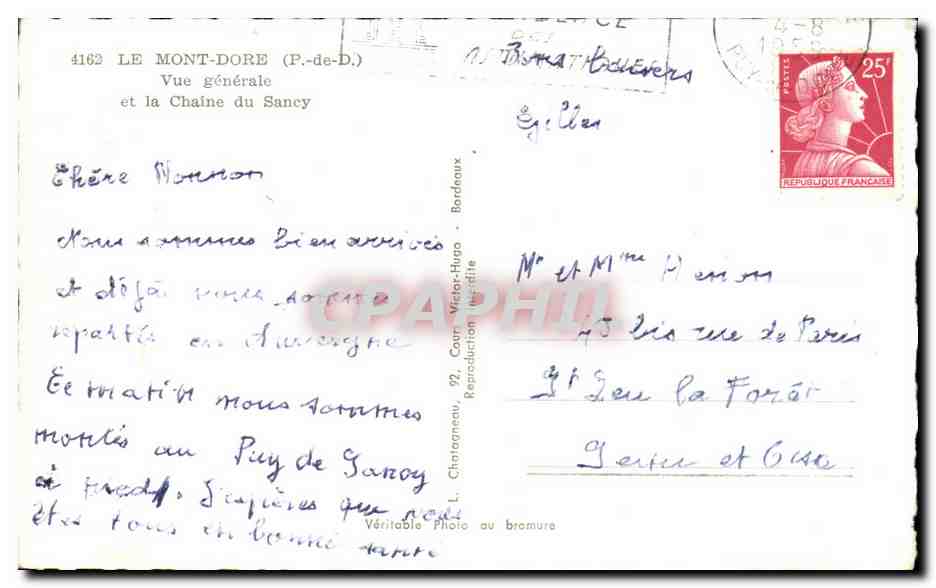 4162 LE MONT-DORE (P.-de-D.)
Vue générale
et la Chaîne du Sancy
Chére Maman
Nous sommes bien arrivés
et déjà nous sommes
repartis en Auvergne
Ce matin nous sommes
montés au Puy de Sancy
à pied. J'espères que vous
êtes tous en bonne santé
Bons baisers
L. Chatagneau, 92, Cours Victor-Hugo - Bordeaux
Reproduction interdite
Véritable Photo au bromure
4-8
POSTES
25F
REPUBLIQUE FRANCAISE
Mr et Mme Henon
bis rue de Paris
St Leu la Forêt
Seine et Oise
CPAPHIL